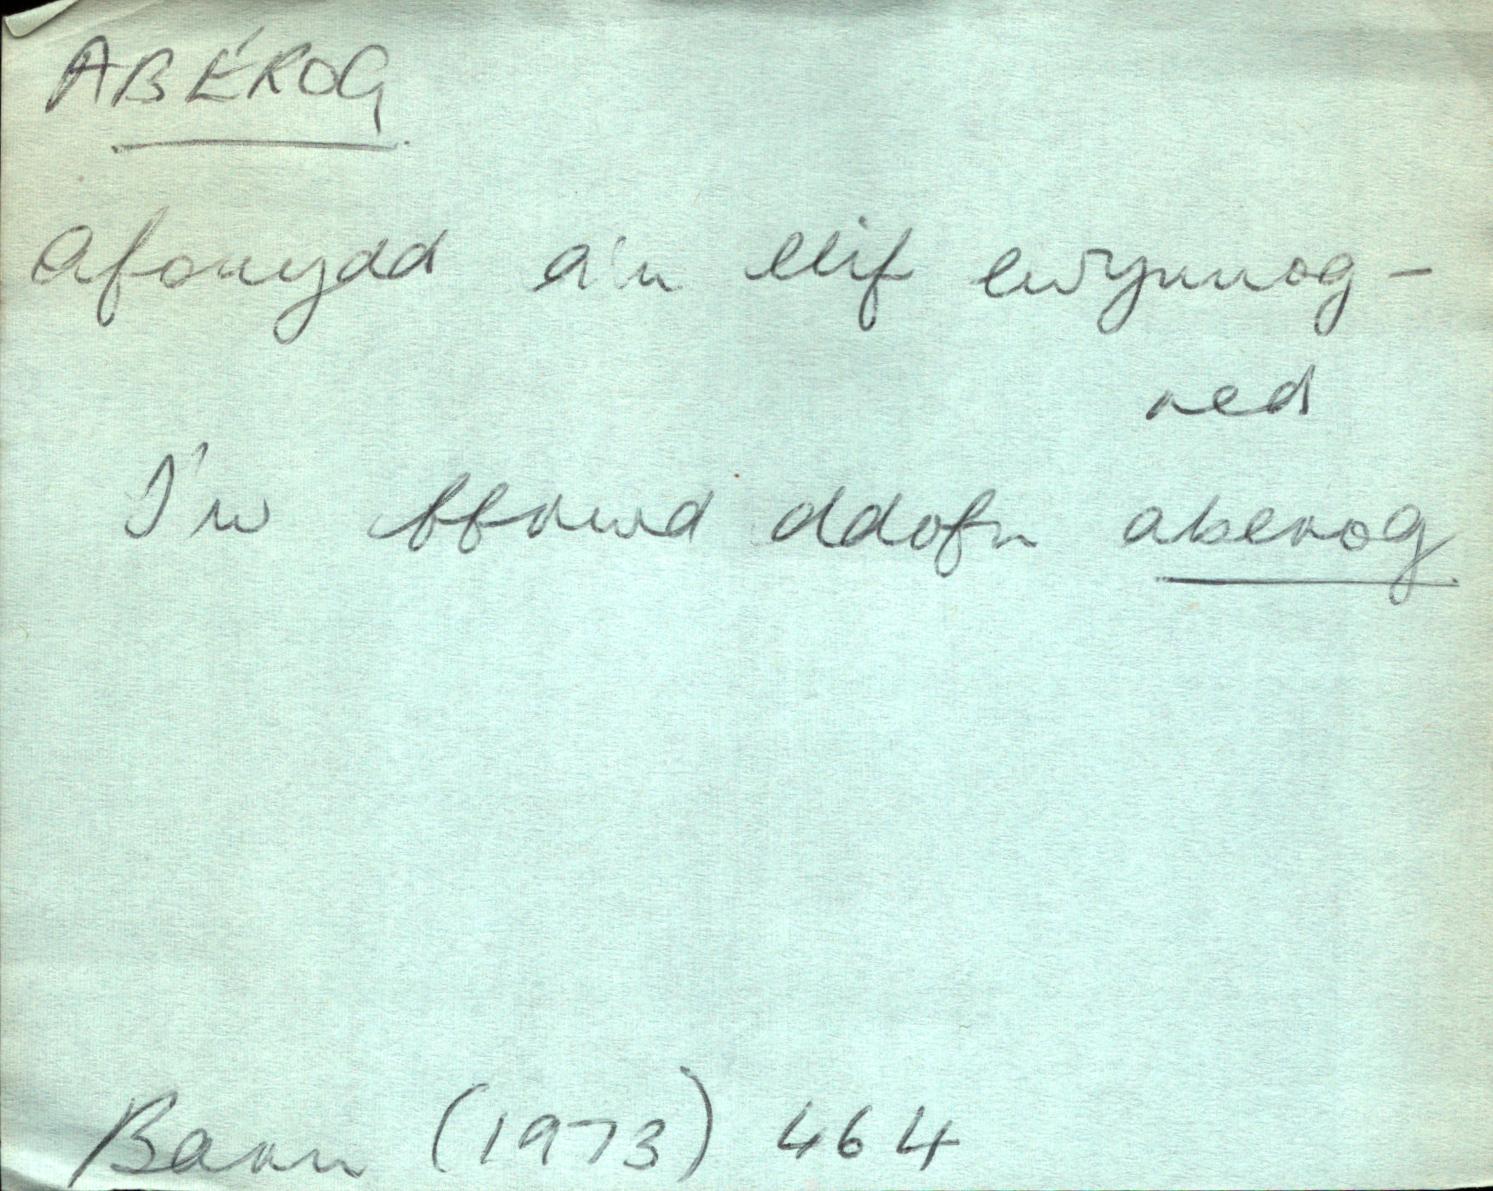 ABÉROG
Afonydd a'u llif ewynnog –
red
I'w ffrwd ddofn aberog
Barn (1973) 464